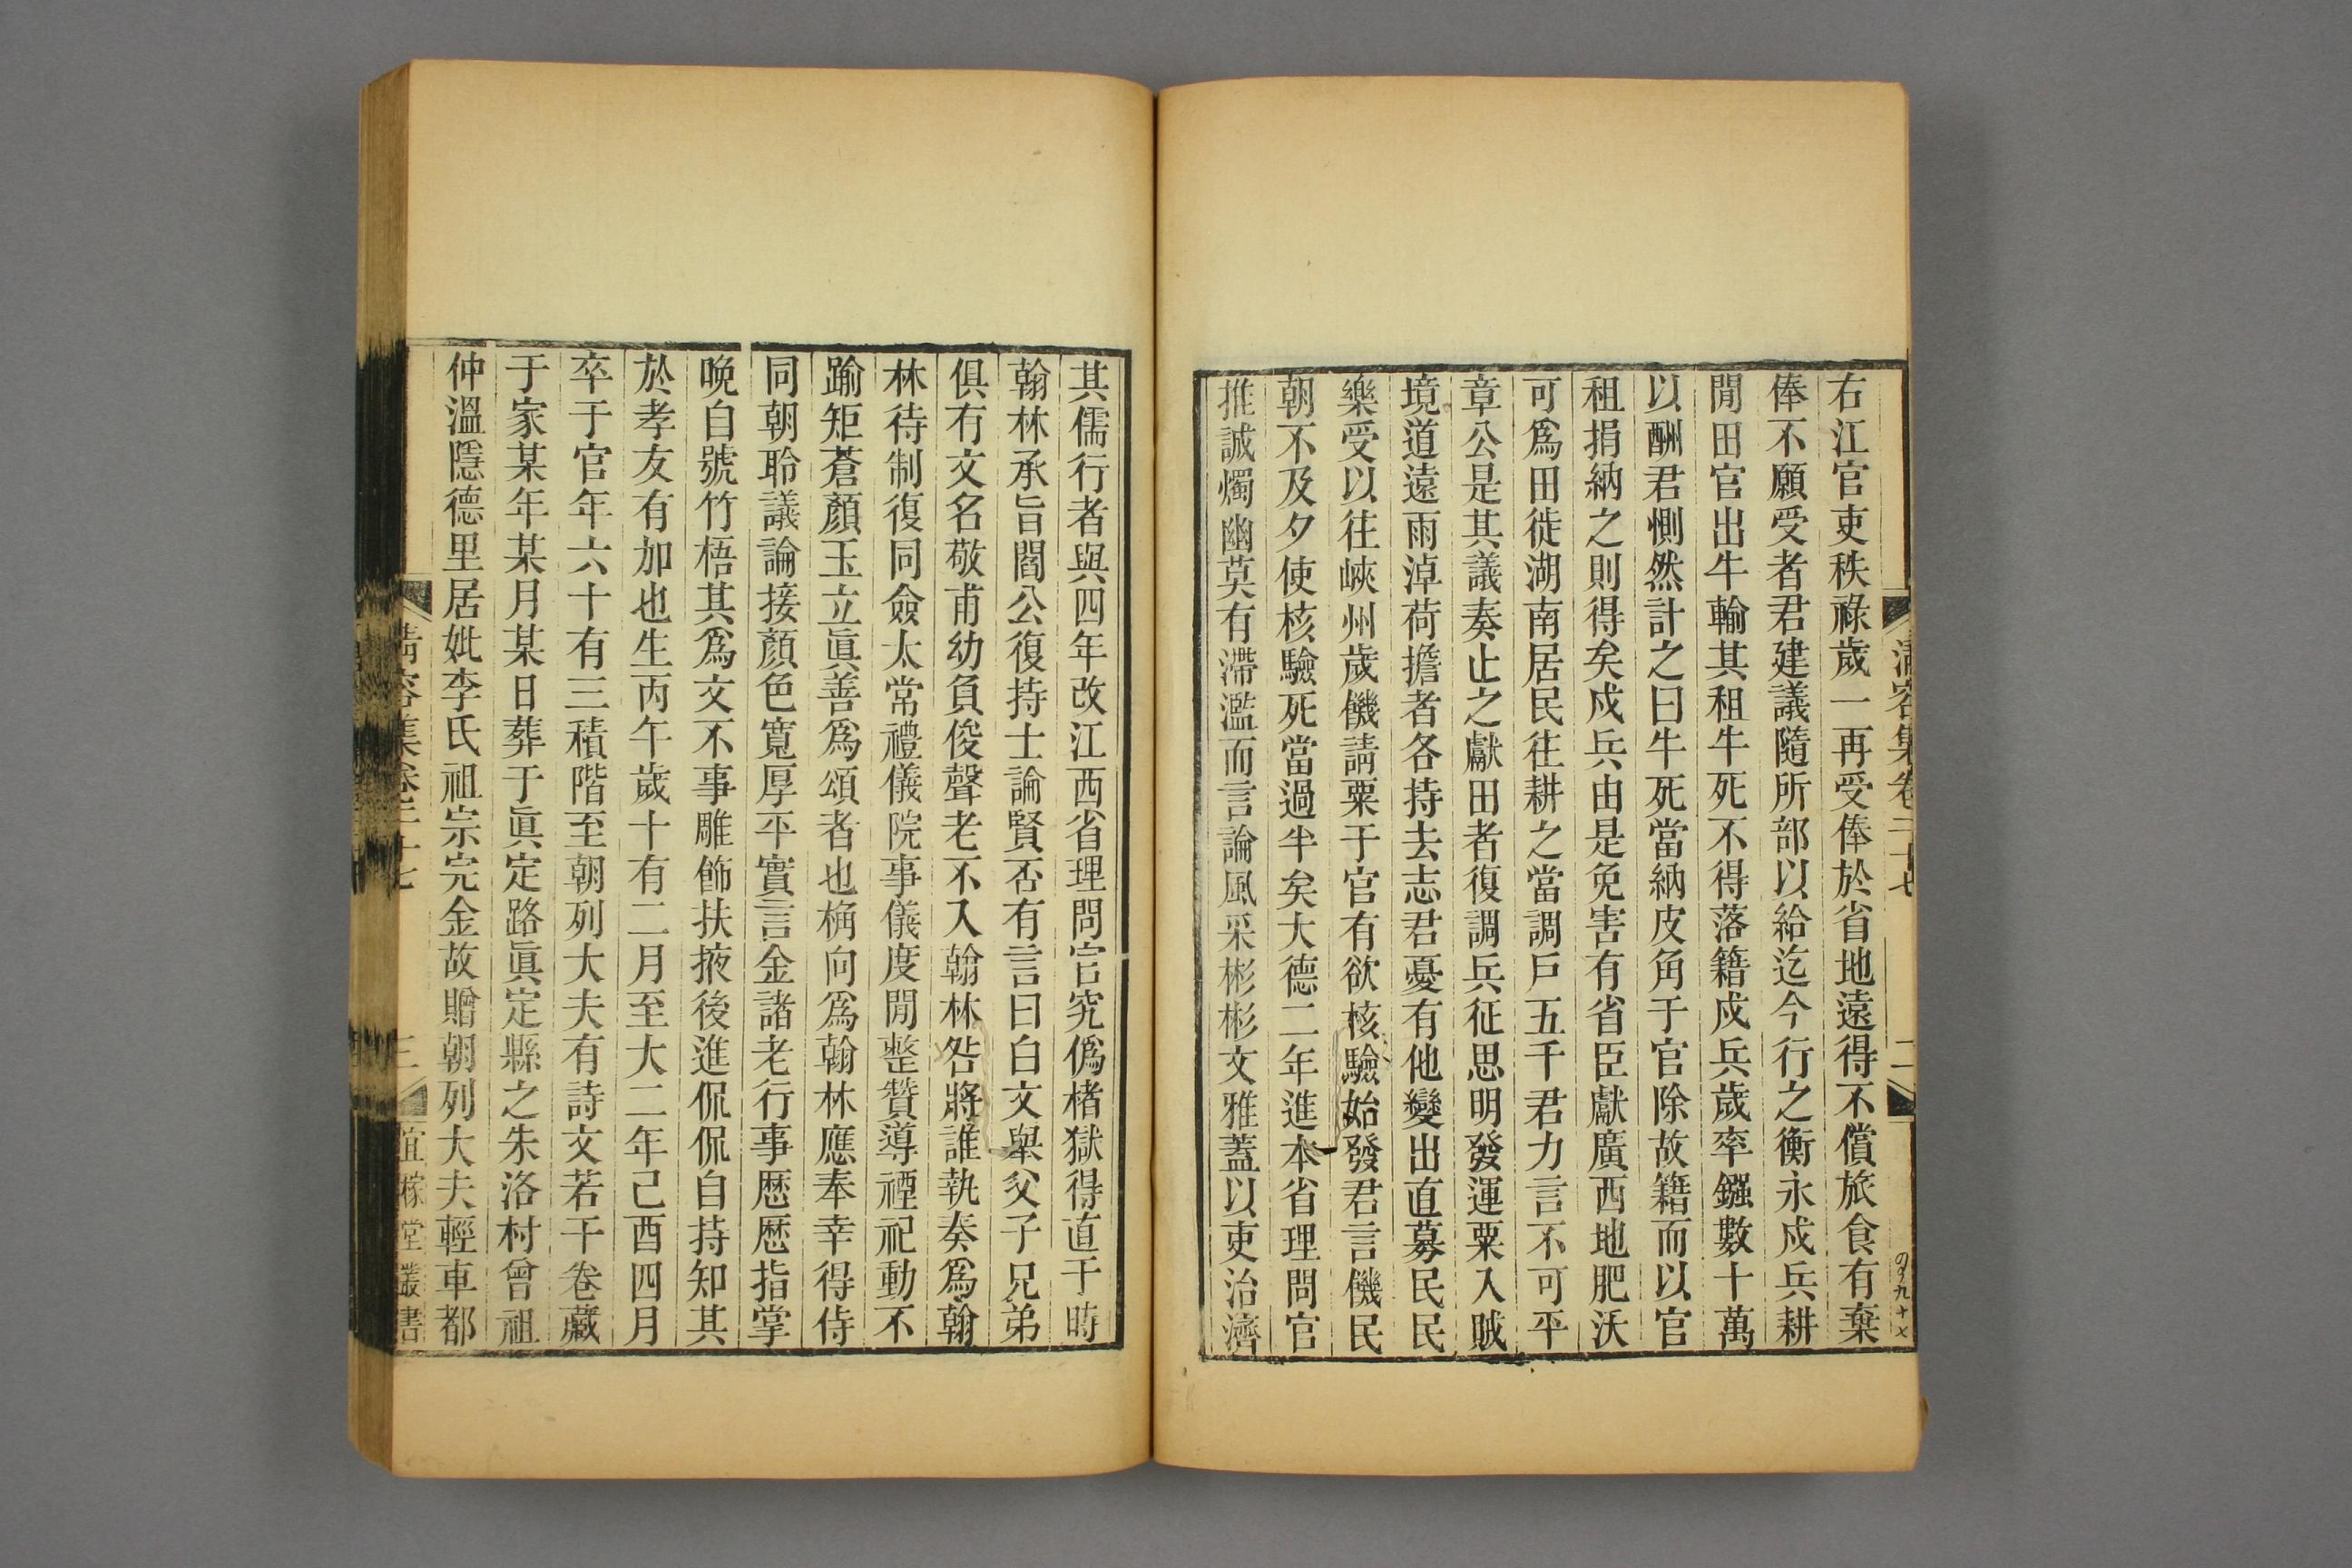 清容集卷二十七
二
右江官吏秩祿歲一再受俸於省地遠得不償旅食有棄
俸不願受者君建議隨所部以給迄今行之衡永戍兵耕
閒田官出牛輸其租牛死不得落籍戍兵歲率鏹數十萬
以酬君惻然計之曰牛死當納皮角于官除故籍而以官
租捐納之則得矣戍兵由是免害有省臣獻廣西地肥沃
可爲田徙湖南居民往耕之當調戶五千君力言不可平
章公是其議奏止之獻田者復調兵征思明發運粟入賊
境道遠雨淖荷擔者各持去志君憂有他變出直募民民
樂受以往峽州歲饑請粟于官有欲核驗始發君言饑民
朝不及夕使核驗死當過半矣大德二年進本省理問官
推誠燭幽莫有滯濫而言論風采彬彬文雅蓋以吏治濟
其儒行者與四年改江西省理問官究僞楮獄得直于時
翰林承旨閻公復持士論賢否有言曰白文舉父子兄弟
俱有文名敬甫幼負俊聲老不入翰林咎將誰執奏爲翰
林待制復同僉太常禮儀院事儀度閒整贊導禋祀動不
踰矩蒼顏玉立眞善爲頌者也桷向爲翰林應奉幸得侍
同朝聆議論接顏色寬厚平實言金諸老行事歷歷指掌
晚自號竹梧其爲文不事雕飾扶掖後進侃侃自持知其
於孝友有加也生丙午歲十有二月至大二年己酉四月
卒于官年六十有三積階至朝列大夫有詩文若干卷藏
于家某年某月某日葬于眞定路眞定縣之朱洛村曾祖
仲溫隱德里居妣李氏祖宗完金故贈朝列大夫輕車都
清容集卷二十七
三
宜稼堂叢書